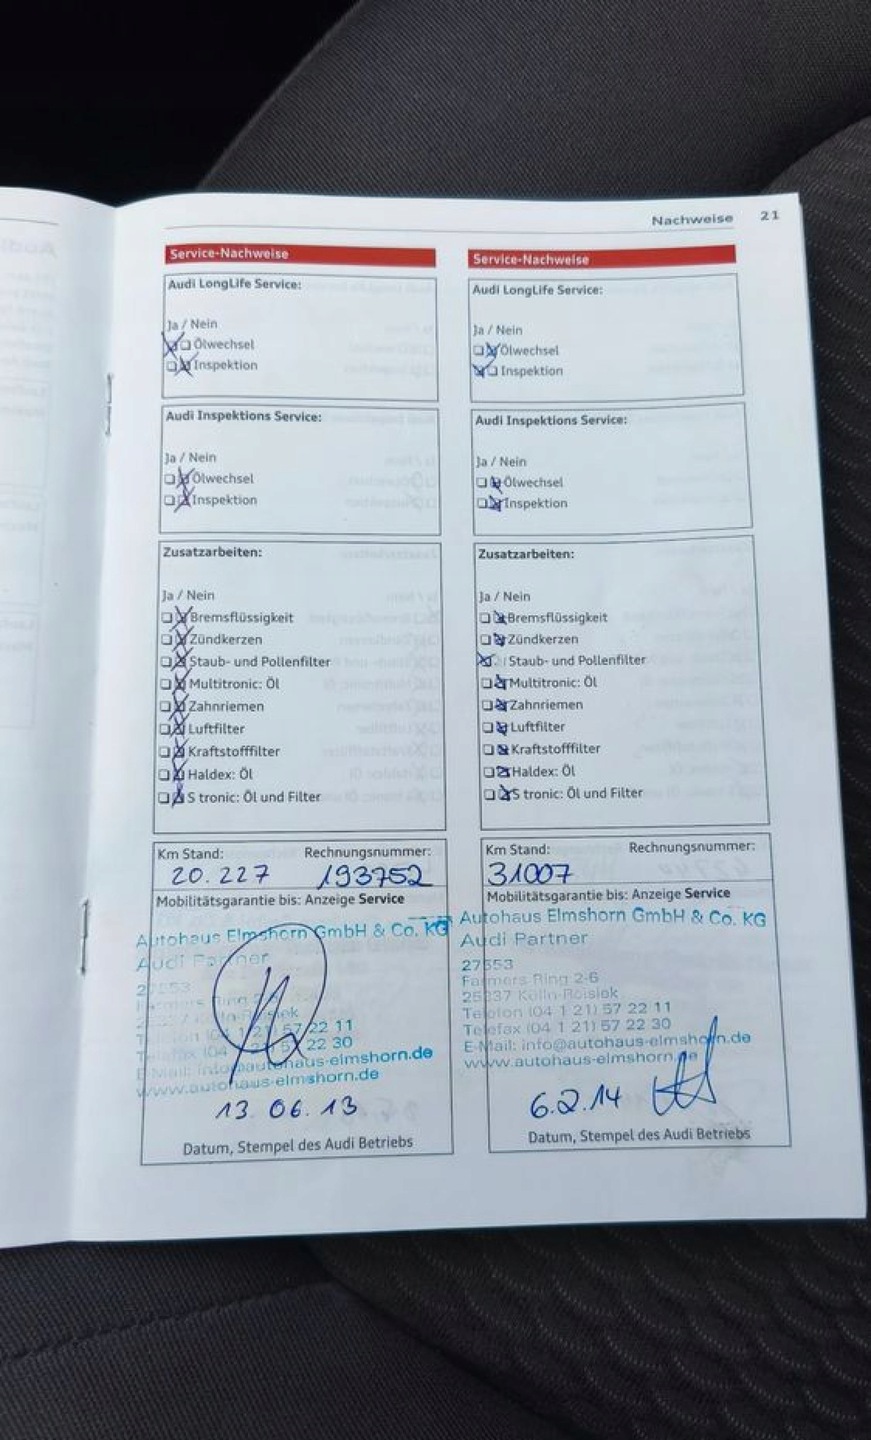 Nachweise 21
Service-Nachweise
Audi LongLife Service:
Ja / Nein
Ölwechsel
Inspektion
Audi Inspektions Service:
Ja / Nein
Ölwechsel
Inspektion
Zusatzarbeiten:
Ja / Nein
Bremsflüssigkeit
Zündkerzen
Staub- und Pollenfilter
Multitronic: Öl
Zahnriemen
Luftfilter
Kraftstofffilter
Haldex: Öl
S tronic: Öl und Filter
Km Stand: Rechnungsnummer:
20.227 193752
Mobilitätsgarantie bis: Anzeige Service
Autohaus Elmshorn GmbH & Co. KG
Audi Partner
27553
Farmers Ring 2-6
Telefon (04 1 21) 57 22 11
Telefax (04 1 21) 57 22 30
E-Mail: info@autohaus-elmshorn.de
www.autohaus-elmshorn.de
13.06.13
Datum, Stempel des Audi Betriebs
Service-Nachweise
Audi LongLife Service:
Ja / Nein
Ölwechsel
Inspektion
Audi Inspektions Service:
Ja / Nein
Ölwechsel
Inspektion
Zusatzarbeiten:
Ja / Nein
Bremsflüssigkeit
Zündkerzen
Staub- und Pollenfilter
Multitronic: Öl
Zahnriemen
Luftfilter
Kraftstofffilter
Haldex: Öl
S tronic: Öl und Filter
Km Stand: Rechnungsnummer:
31007
Mobilitätsgarantie bis: Anzeige Service
Autohaus Elmshorn GmbH & Co. KG
Audi Partner
27553
Farmers Ring 2-6
25337 Kölln-Reisiek
Telefon (04 1 21) 57 22 11
Telefax (04 1 21) 57 22 30
E-Mail: info@autohaus-elmshorn.de
www.autohaus-elmshorn.de
6.2.14
Datum, Stempel des Audi Betriebs